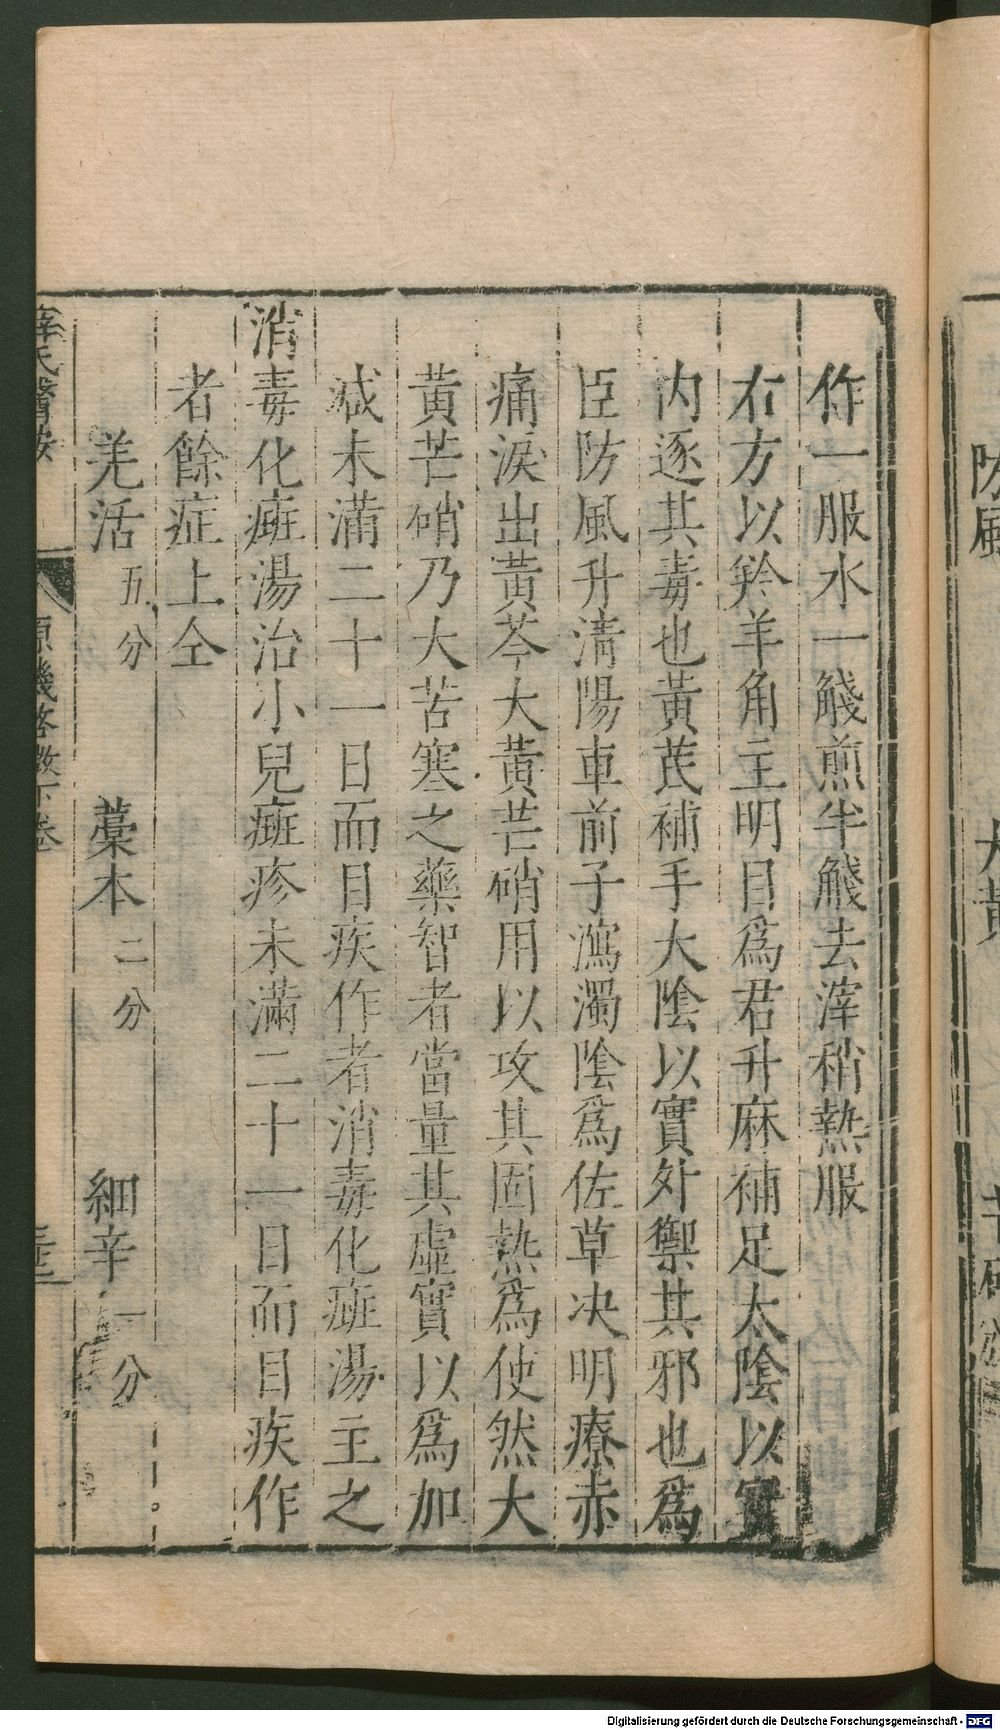 作一服水一餞煎半餞去滓稍熱服
右方以羚羊角主明目爲君升麻補足太陰以實
内逐其毒也黃茋補手太陰以實外禦其邪也爲
臣防風升清陽車前子瀉濁陰爲佐草决明療赤
痛淚出黃芩大黃芒硝用以攻其固熱爲使然大
黃芒硝乃大苦寒之藥智者當量其虛實以爲加
减未滿二十一日而目疾作者消毒化斑湯主之
消毒化斑湯治小兒斑疹未滿二十一日而目疾作
者餘症上仝
羌活五分 藁本二分 細辛一分
薛氏醫按 原機啓微下卷
防風 大黃
Digitalisierung gefördert durch die Deutsche Forschungsgemeinschaft - DFG